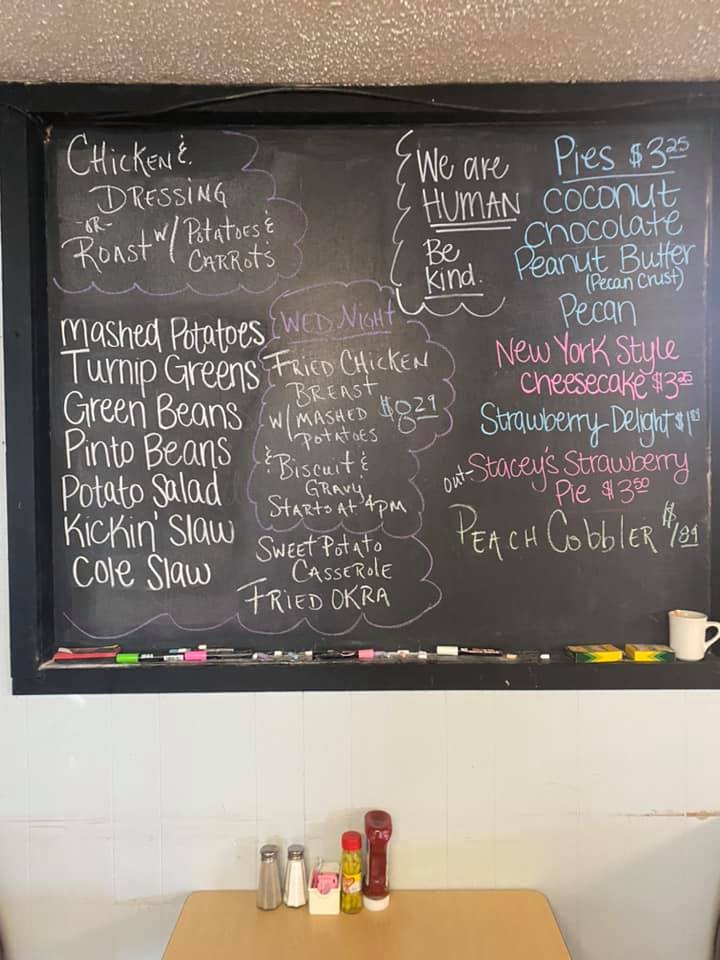 CHICKEN &
DRESSING
-OR-
ROAST W/ POTATOES &
CARROTS
Mashed Potatoes
Turnip Greens
Green Beans
Pinto Beans
Potato Salad
Kickin' Slaw
Cole Slaw
WED. NIGHT
FRIED CHICKEN
BREAST
W/ MASHED
POTATOES
$8.29
& BISCUIT &
GRAVY
STARTS AT 4PM
SWEET POTATO
CASSEROLE
FRIED OKRA
We are
HUMAN
Be
Kind.
Pies $3.25
Coconut
Chocolate
Peanut Butter
(Pecan Crust)
Pecan
New York Style
Cheesecake $3.25
Strawberry Delight
out- Stacey's Strawberry
Pie $3.50
PEACH CobblER